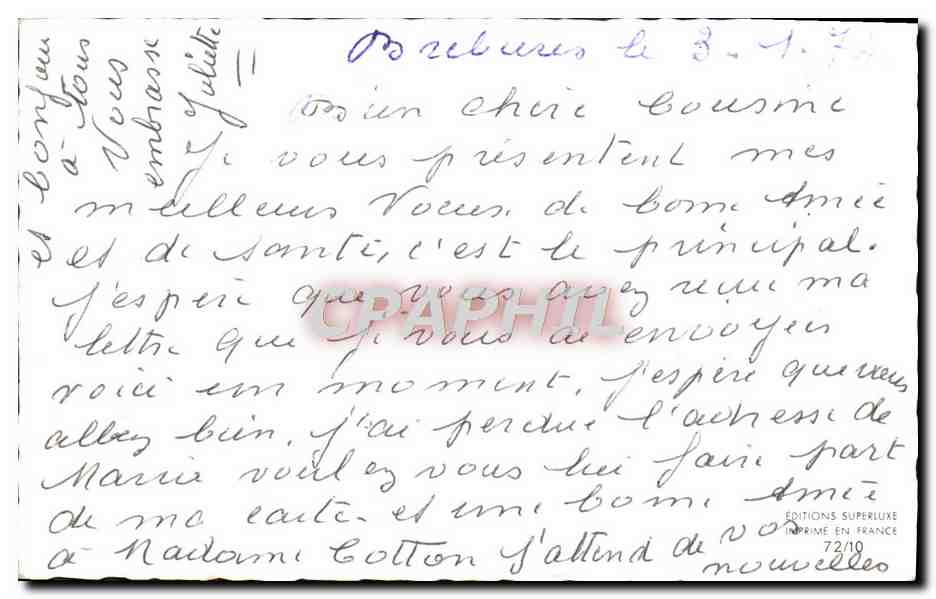 Brebieres le 3.1.7
Bien chère Cousine
Je vous présentent mes
meilleurs Voeux de bonne Année
et de santé, c'est le principal.
J'espère que vous avez reçu ma
lettre que je vous ai envoyer
voici un moment, J'espère que vous
allez bien, j'ai perdue l'adresse de
Marie voulez vous lui faire part
de ma carte et une bonne Année
à Madame Cotton J'attend de vos
nouvelles
et bonjour
à tous
Vous
embrasse
Juliette
CPARPHIL
EDITIONS SUPERLUXE
IMPRIME EN FRANCE
72/10